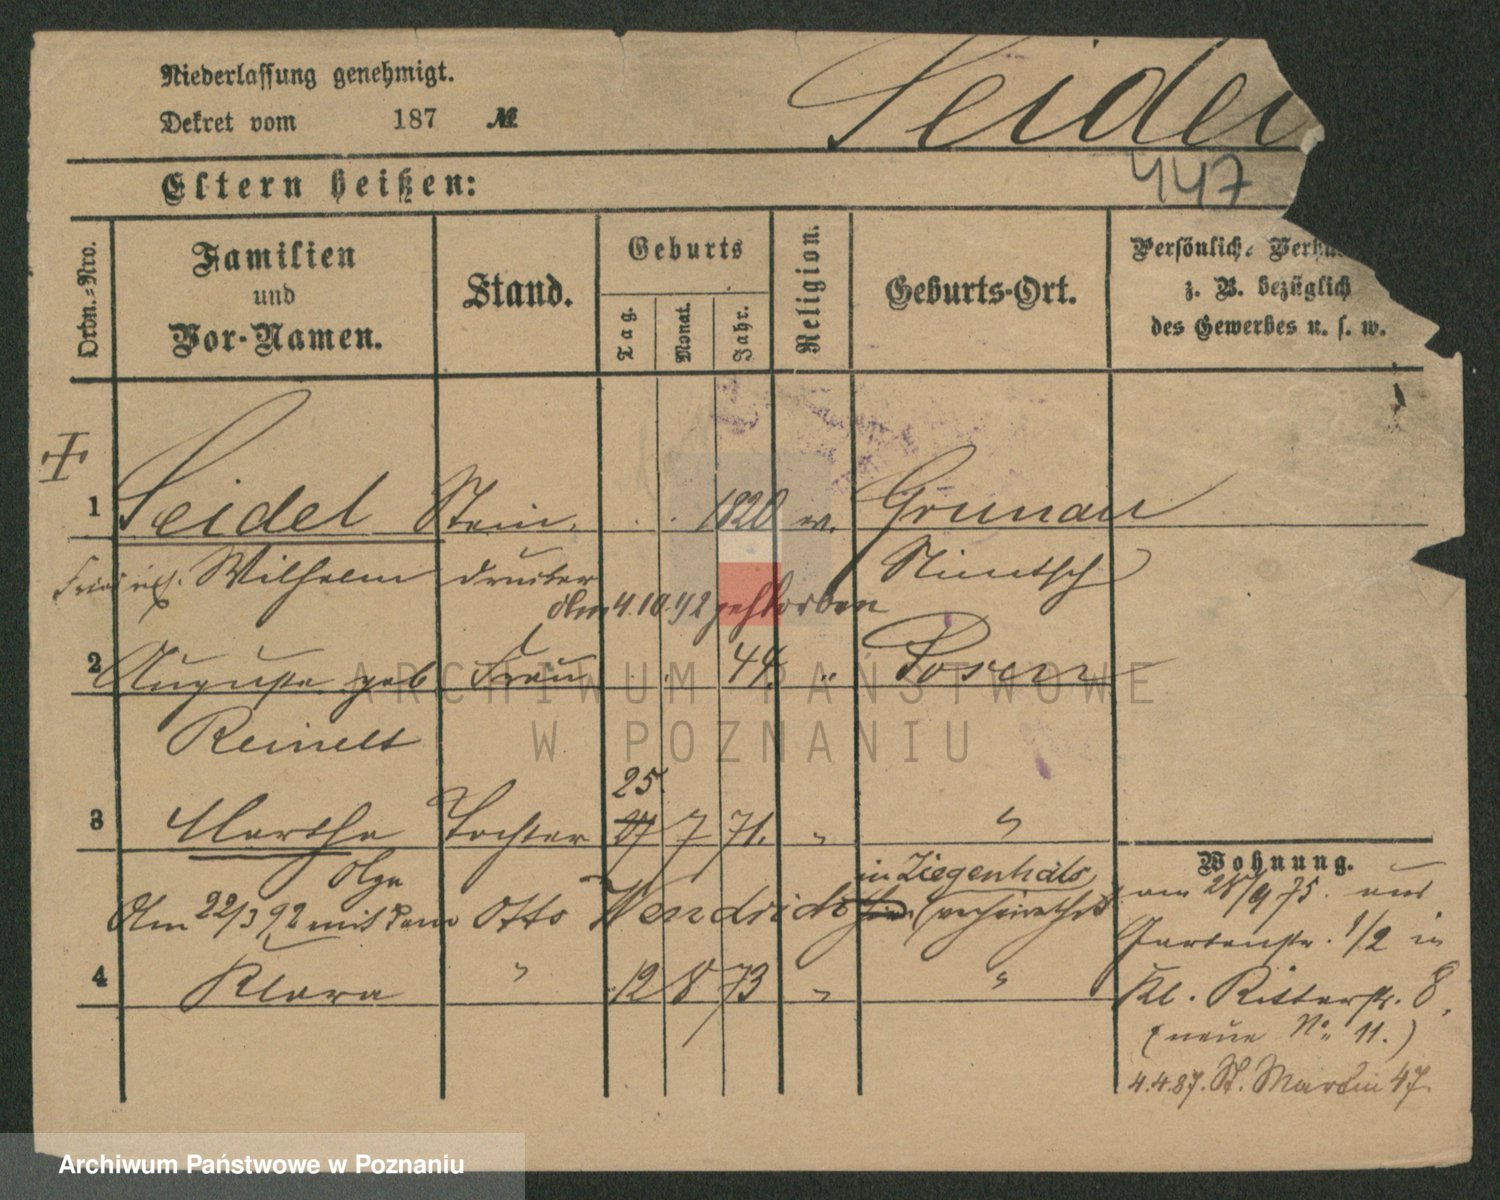 Niederlassung genehmigt.
Dekret vom 187 №
Seidel
447
Eltern heißen:
Ordn.-Nro.
Familien
und
Vor-Namen.
Stand.
Geburts
Tag.
Monat.
Jahr.
Religion.
Geburts-Ort.
Persönliche Verhä
z. B. bezüglich
des Gewerbes u. s. w.
1 Seidel Stein 1820 ev. Grunau
Wilhelm drucker Nimtsch
Am 4.10.92 gestorben
2 Auguste geb Frau 44. " Posen
Reinelt
25.
3 Martha Tochter 27 7 71. " "
Olga in Ziegenhals
Am 22/3 92 mit dem Otto Wendrich verheirathet
4 Klara " 12 8 73 " "
Wohnung.
am 28/9 75. aus
Gartenstr. 1/2 in
Kl. Ritterstr. 8,
(neue No 11.)
4.4.87. St. Martin 47.
ARCHIWUM PAŃSTWOWE
W POZNANIU
Archiwum Państwowe w Poznaniu